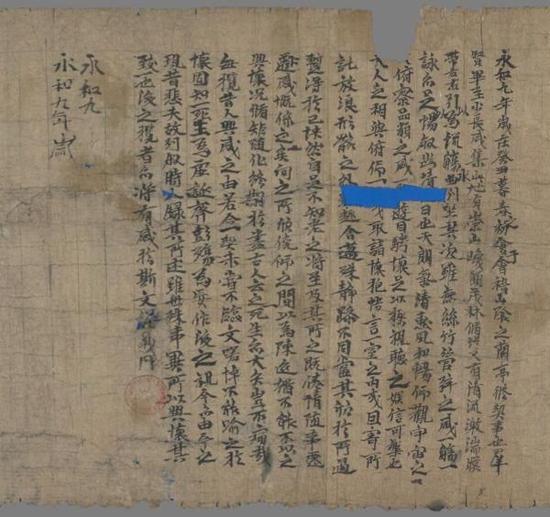 永和九年歲在癸丑暮春初會于會稽山陰之蘭亭脩契事也群
賢畢至少長咸集此地有崇山峻領茂林脩竹又有清流激湍暎
帶左右引以為流觴曲水列坐其次雖無絲竹管弦之盛一觴一
詠亦足暢敘幽情日也天朗氣清惠風和暢仰觀宇宙之
俯察品類之盛遊目騁懷足以極視聽之娛信可樂也
夫人之相與俯仰一或取諸懷抱悟言一室之內或因寄所
託放浪形骸之外趣舍萬殊靜躁不同當其欣於所遇
蹔得於己怏然自足不知老之將至及其所之既倦情隨事遷
感慨係之矣向之所欣俛仰之間以為陳迹猶不能不以之
興懷況脩短隨化終期於盡古人云死生亦大矣豈不痛哉
每攬昔人興感之由若合一契未嘗不臨文嗟悼不能喻之於
懷固知一死生為虛誕齊彭殤為妄作後之視今亦由今之
視昔悲夫故列敘時人錄其所述雖世殊事異所以興懷其
致一也後之攬者亦將有感於斯文
永和九
永和九年歲